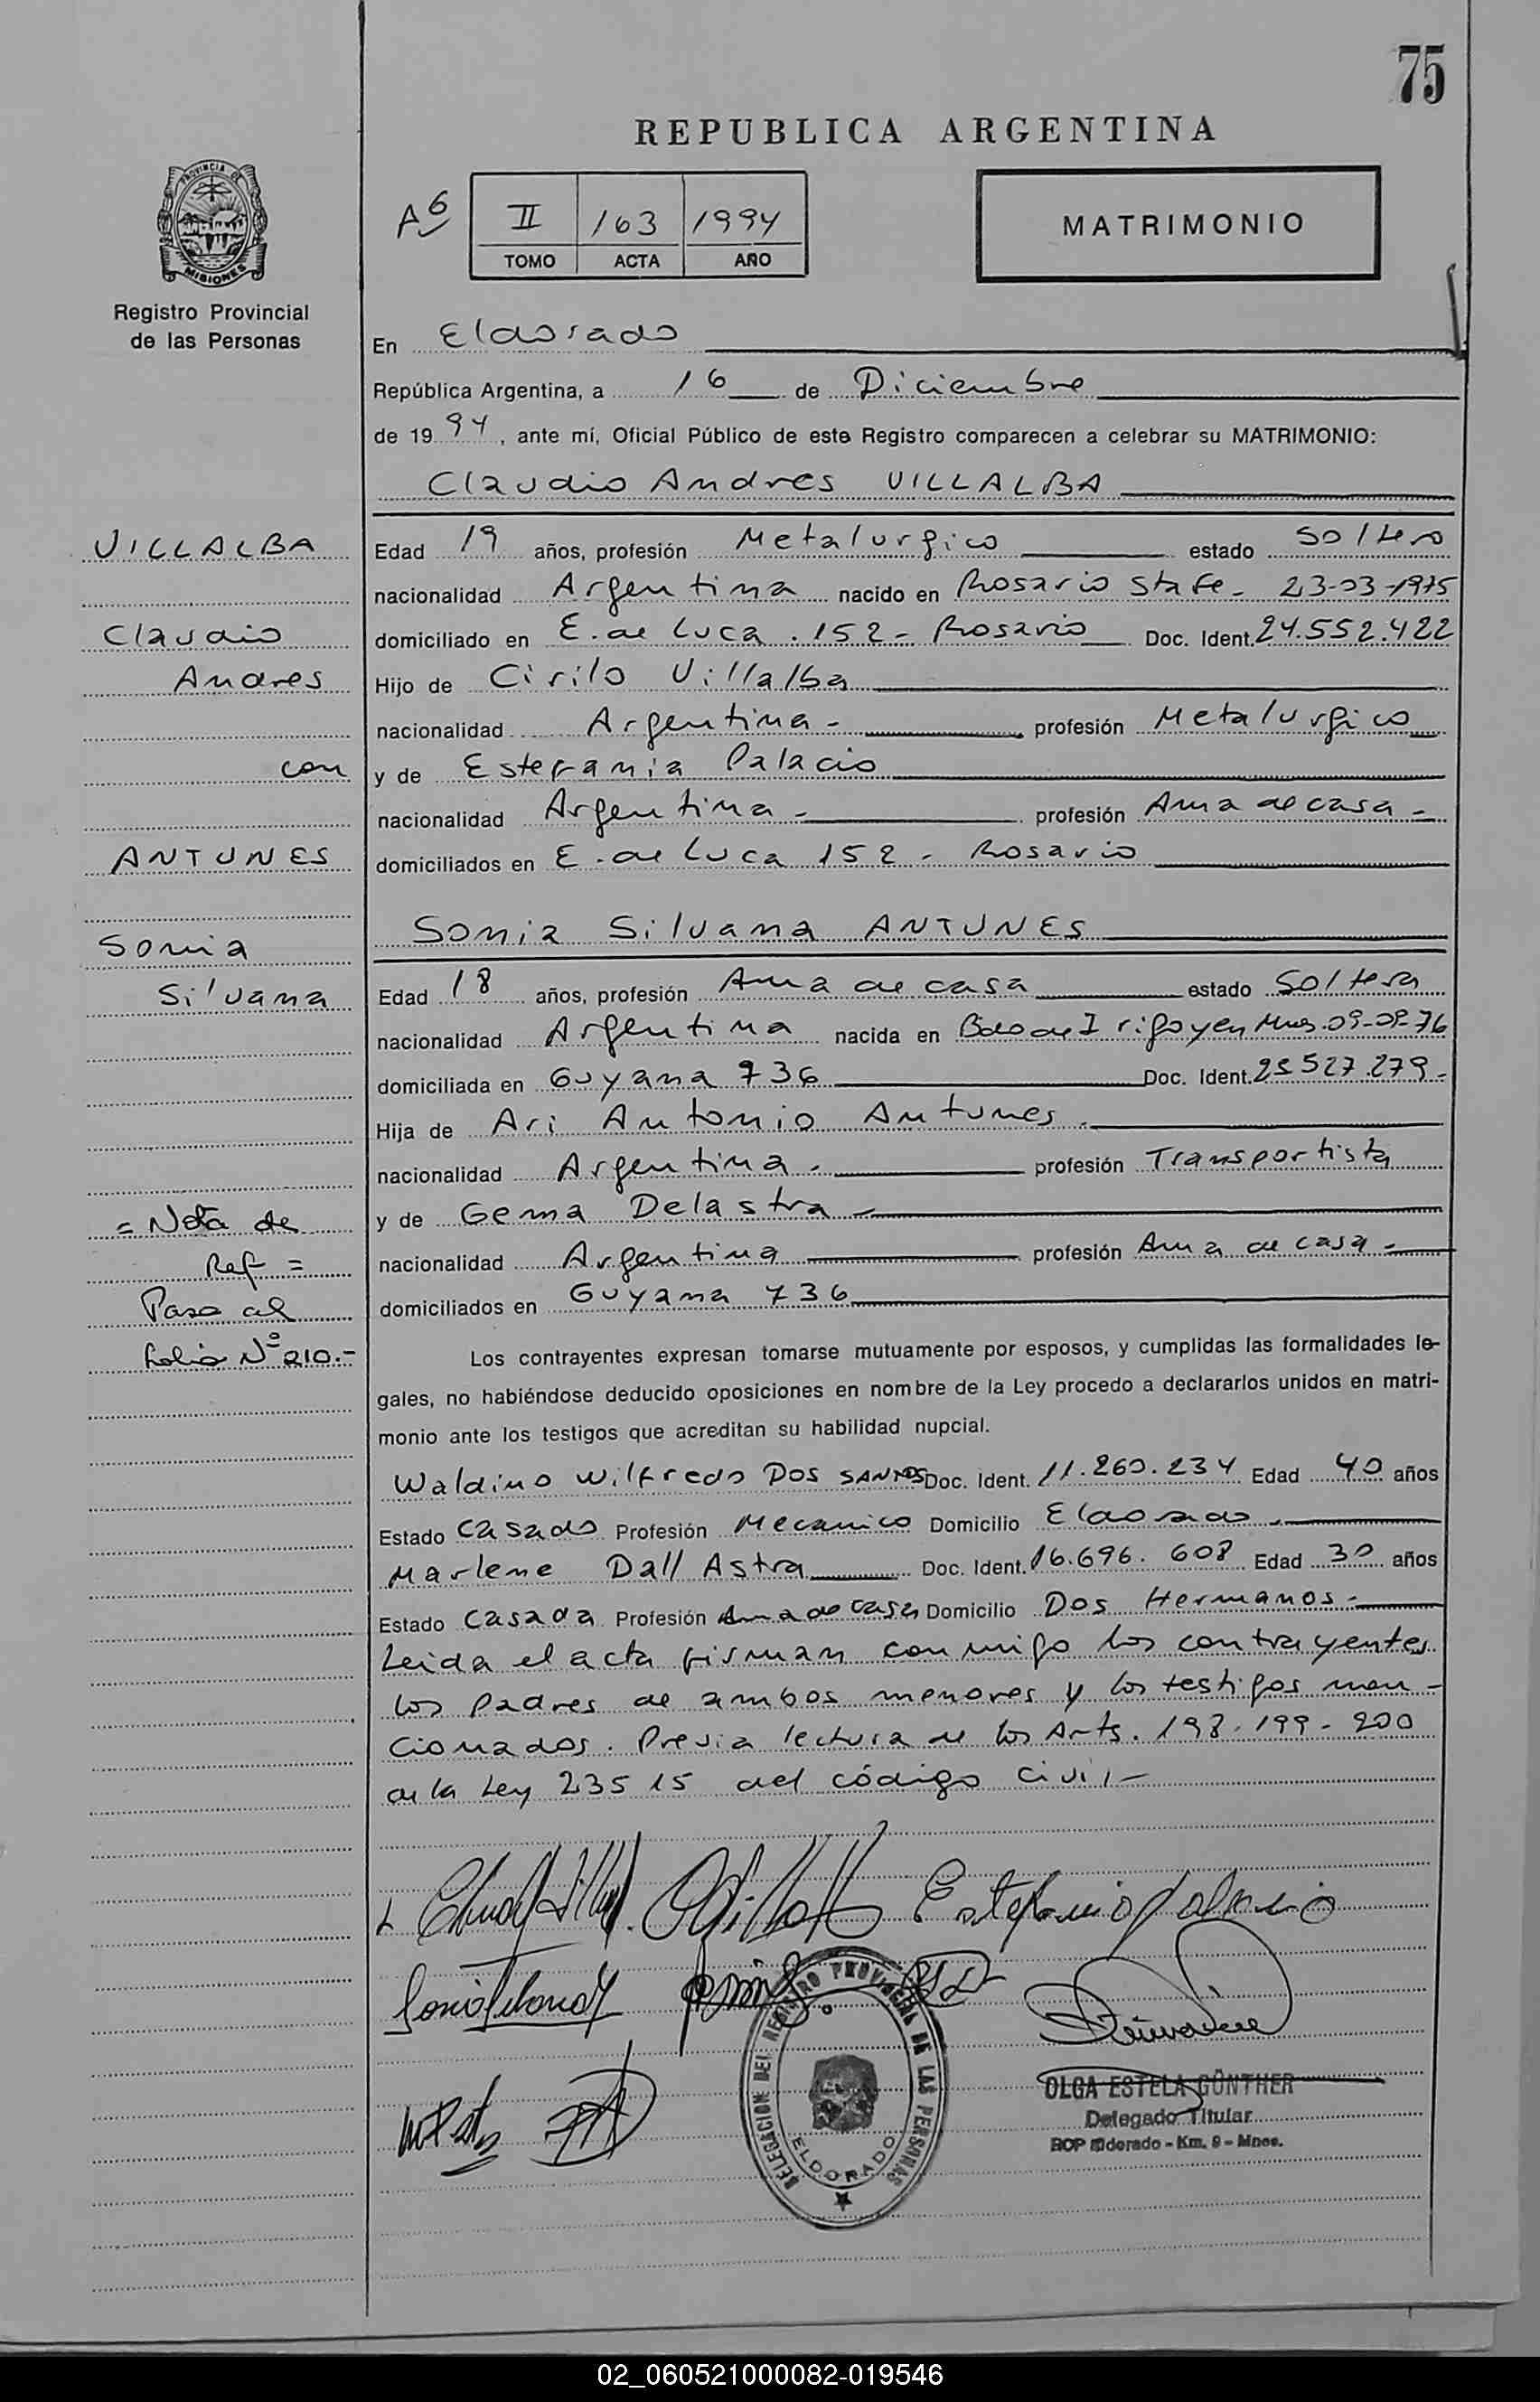 75
REPUBLICA ARGENTINA
II 163 1994
TOMO ACTA AÑO
MATRIMONIO
PROVINCIA DE
MISIONES
Registro Provincial
de las Personas
En Eldorado
República Argentina, a 16 de Diciembre
de 1994, ante mí, Oficial Público de este Registro comparecen a celebrar su MATRIMONIO:
Claudio Andres VILLALBA
VILLALBA
Claudio
Andres
con
ANTUNES
Sonia
Silvana
= Nota de
Ref =
Pasa al
folio Nº 210.-
Edad 19 años, profesión Metalurgico estado Soltero
nacionalidad Argentina nacido en Rosario Sta Fe - 23-03-1975
domiciliado en E. de Luca . 152 - Rosario Doc. Ident. 24.552.422
Hijo de Cirilo Villalba
nacionalidad Argentina - profesión Metalurgico
y de Estefania Palacio
nacionalidad Argentina - profesión Ama de casa -
domiciliados en E. de Luca 152 - Rosario
Sonia Silvana ANTUNES
Edad 18 años, profesión Ama de casa estado Soltera
nacionalidad Argentina nacida en Bdo de Irigoyen Mnes. 09-09-76
domiciliada en Guyana 736 Doc. Ident. 25527.279-
Hija de Ari Antonio Antunes.
nacionalidad Argentina - profesión Transportista
y de Gema Delastra -
nacionalidad Argentina profesión Ama de casa -
domiciliados en Guyana 736
Los contrayentes expresan tomarse mutuamente por esposos, y cumplidas las formalidades le-
gales, no habiéndose deducido oposiciones en nombre de la Ley procedo a declararlos unidos en matri-
monio ante los testigos que acreditan su habilidad nupcial.
Waldino Wilfredo Dos SANTOS Doc. Ident. 11.260.234 Edad 40 años
Estado Casado Profesión Mecanico Domicilio Eldorado.
Marlene Dall Astra Doc. Ident. 16.696.608 Edad 30 años
Estado Casada Profesión Ama de casa Domicilio Dos Hermanos -
Leida el acta firman conmigo los contrayentes
los padres de ambos menores y los testigos men-
cionados. Previa lectura de los Arts. 198-199-200
de la Ley 23515 del código civil-
Estefania Palacio
DELEGACION DEL REGISTRO PROVINCIAL DE LAS PERSONAS
ELDORADO
OLGA ESTELA GÜNTHER
Delegado Titular
RCP Eldorado - Km. 9 - Mnes.
02_060521000082-019546